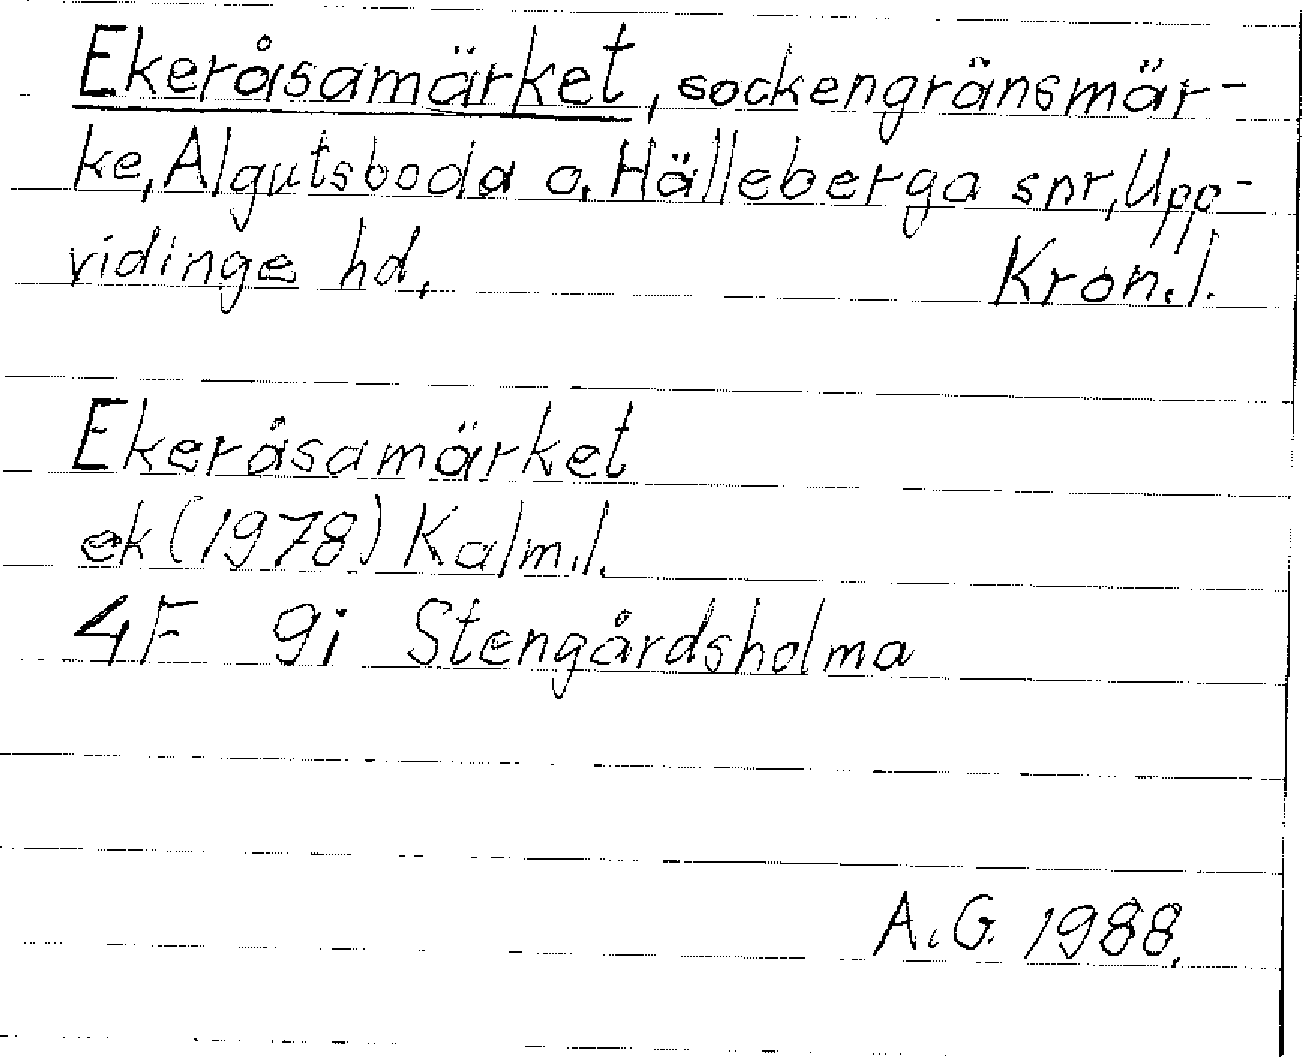 Ekeråsamärket, sockengränsmär-
ke, Algutsboda o. Hälleberga snr, Upp-
vidinge hd, Kron.l.
Ekeråsamärket
ek (1978) Kalm.l.
4F 9i Stengårdsholma
A.G. 1988.